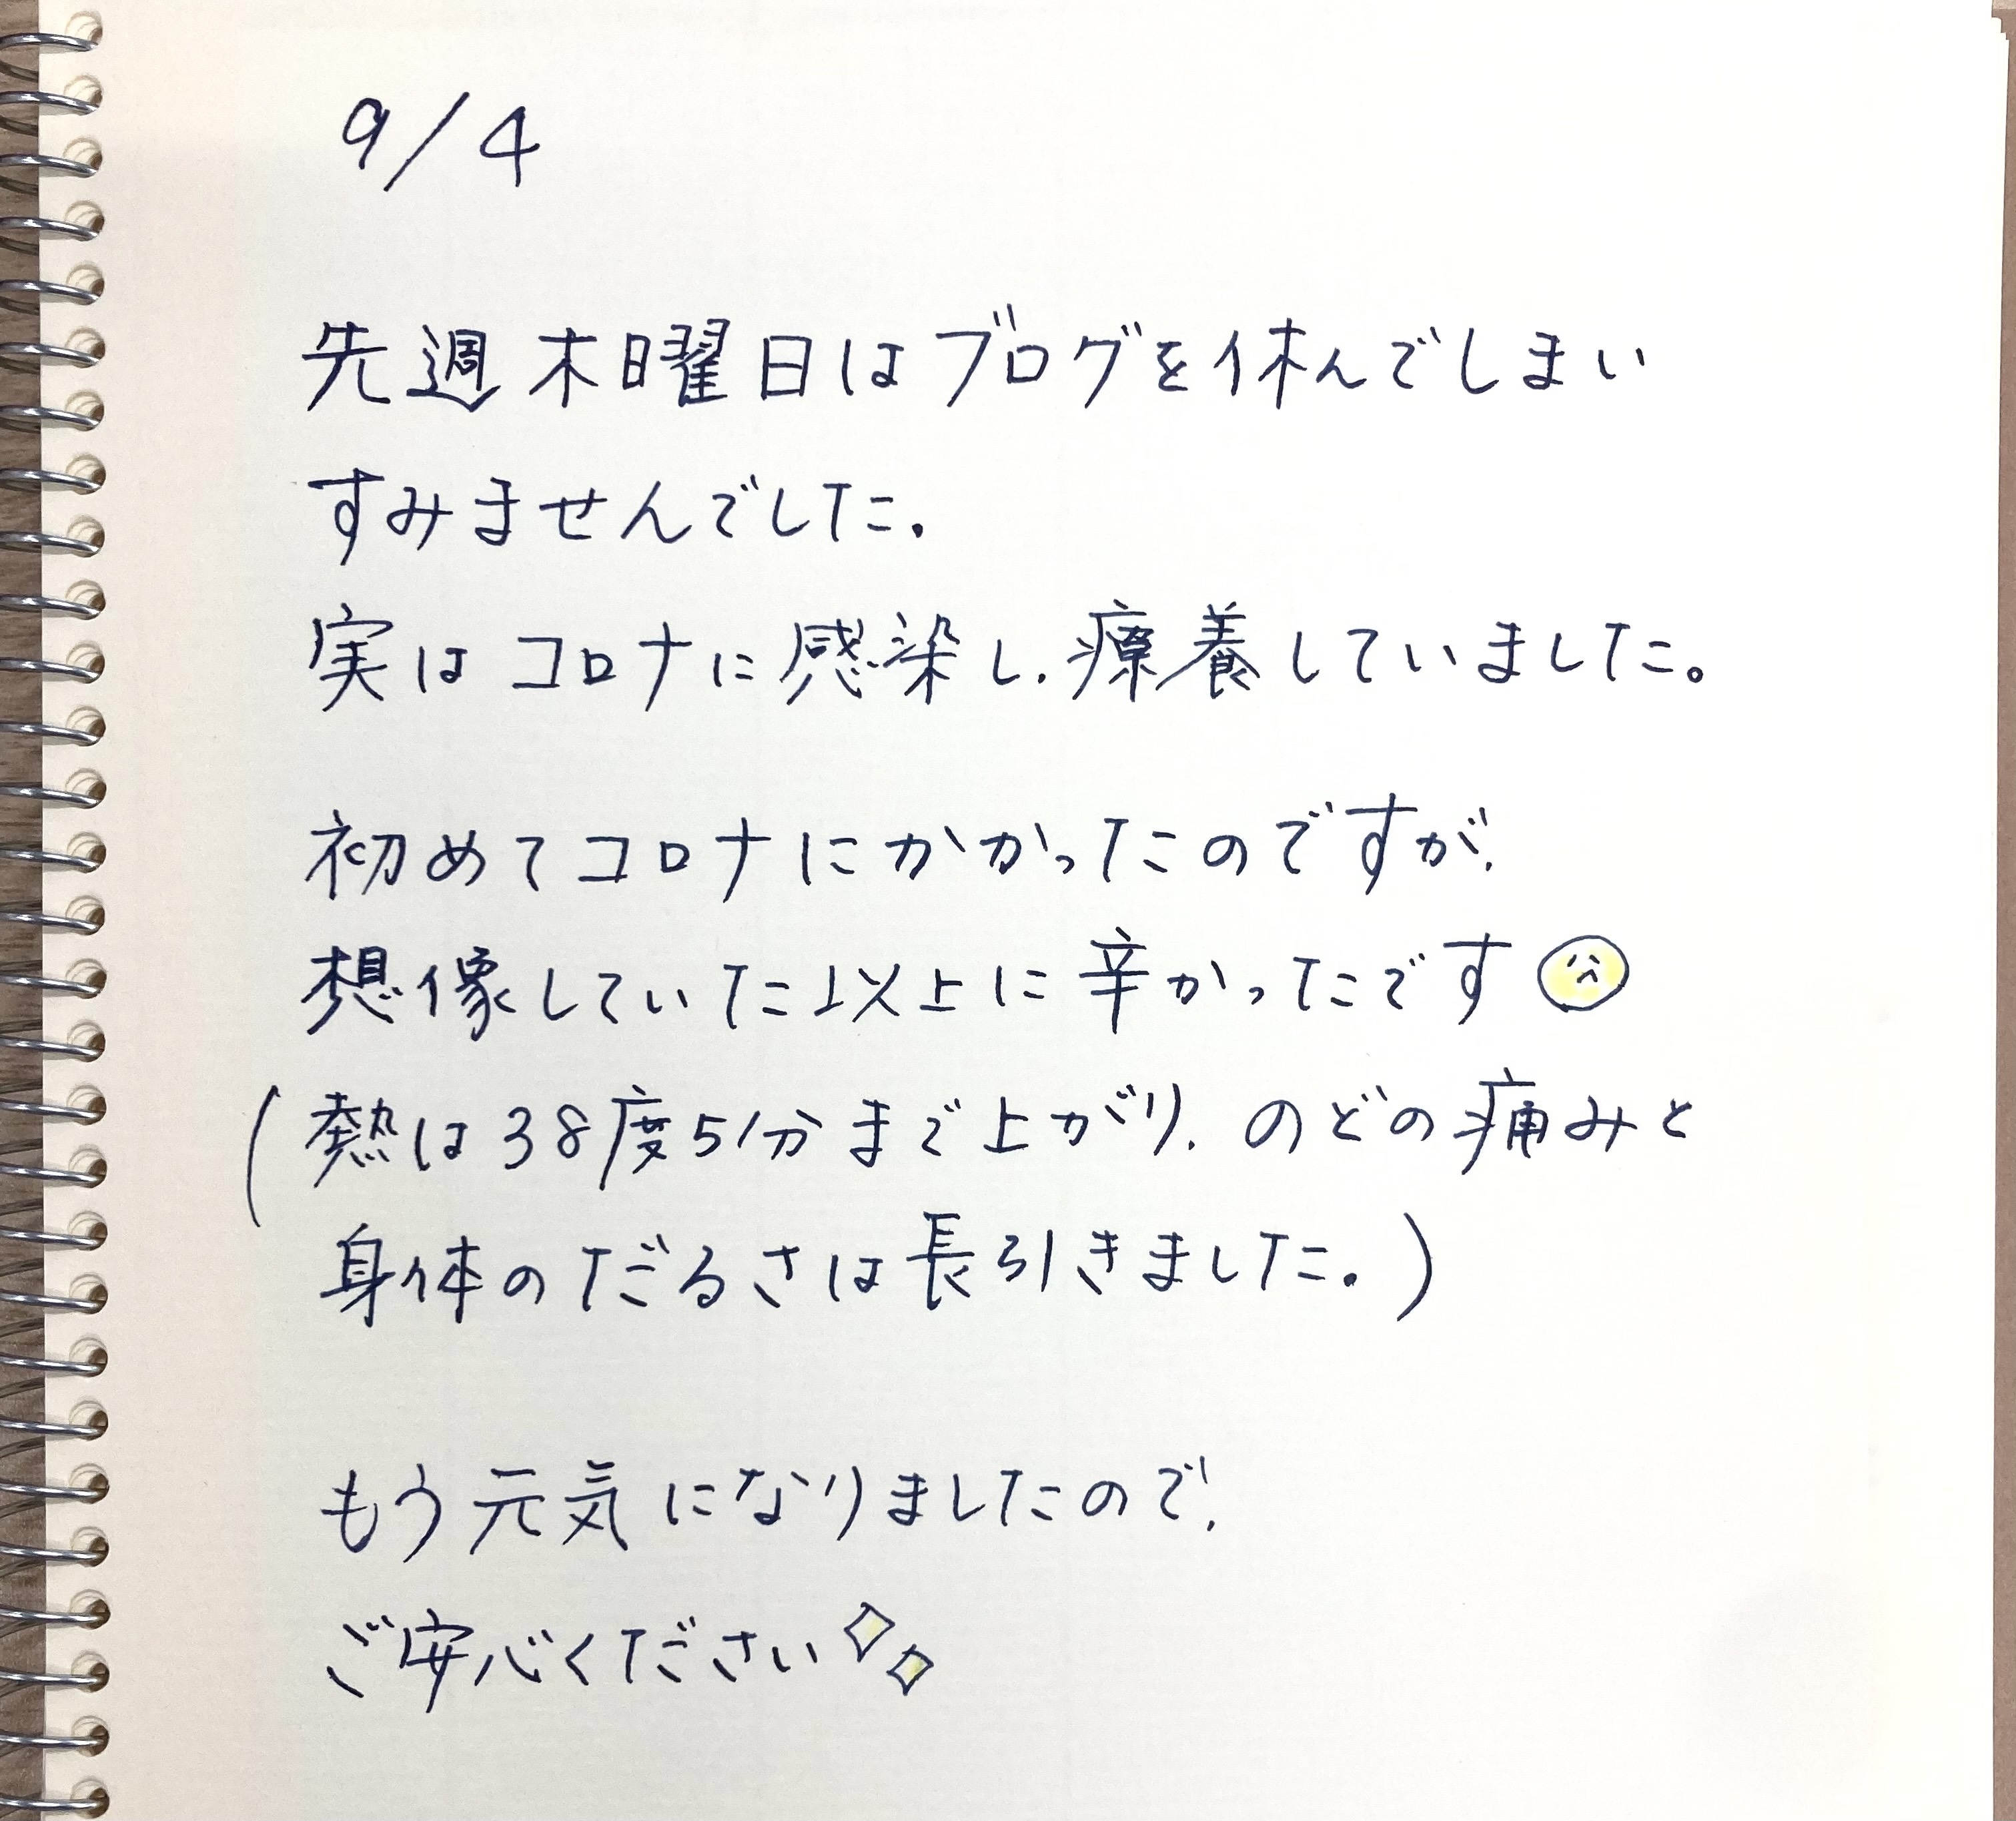 9/4
先週木曜日はブログを休んでしまい
すみませんでした。
実はコロナに感染し、療養していました。
初めてコロナにかかったのですが、
想像していた以上に辛かったです
(熱は38度5分まで上がり、のどの痛みと
身体のだるさは長引きました。)
もう元気になりましたので、
ご安心ください